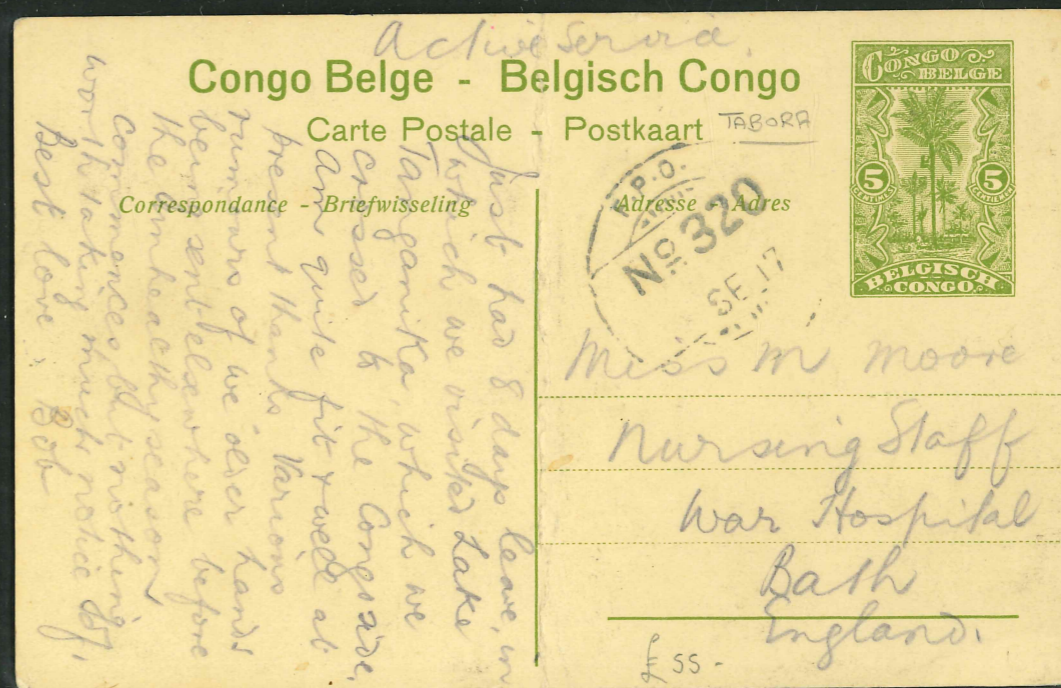 Active Service.
Congo Belge - Belgisch Congo
Carte Postale - Postkaart
TABORA
CONGO
BELGE
5
CENTIMES
5
CENTIEMEN
BELGISCH
CONGO
Correspondance - Briefwisseling
Adresse - Adres
.P.O.
No 320
SE 17
Just had 8 days leave, in
which we visited Lake
Tanganika, which we
crossed to the Congo side,
Am quite fit & well at
present thanks Various
rumours of we older hands
being sent elsewhere before
the unhealthy season
commences but nothing
worth taking much notice of.
Best love Bob
Miss M Moore
Nursing Staff
War Hospital
Bath
England.
£55-